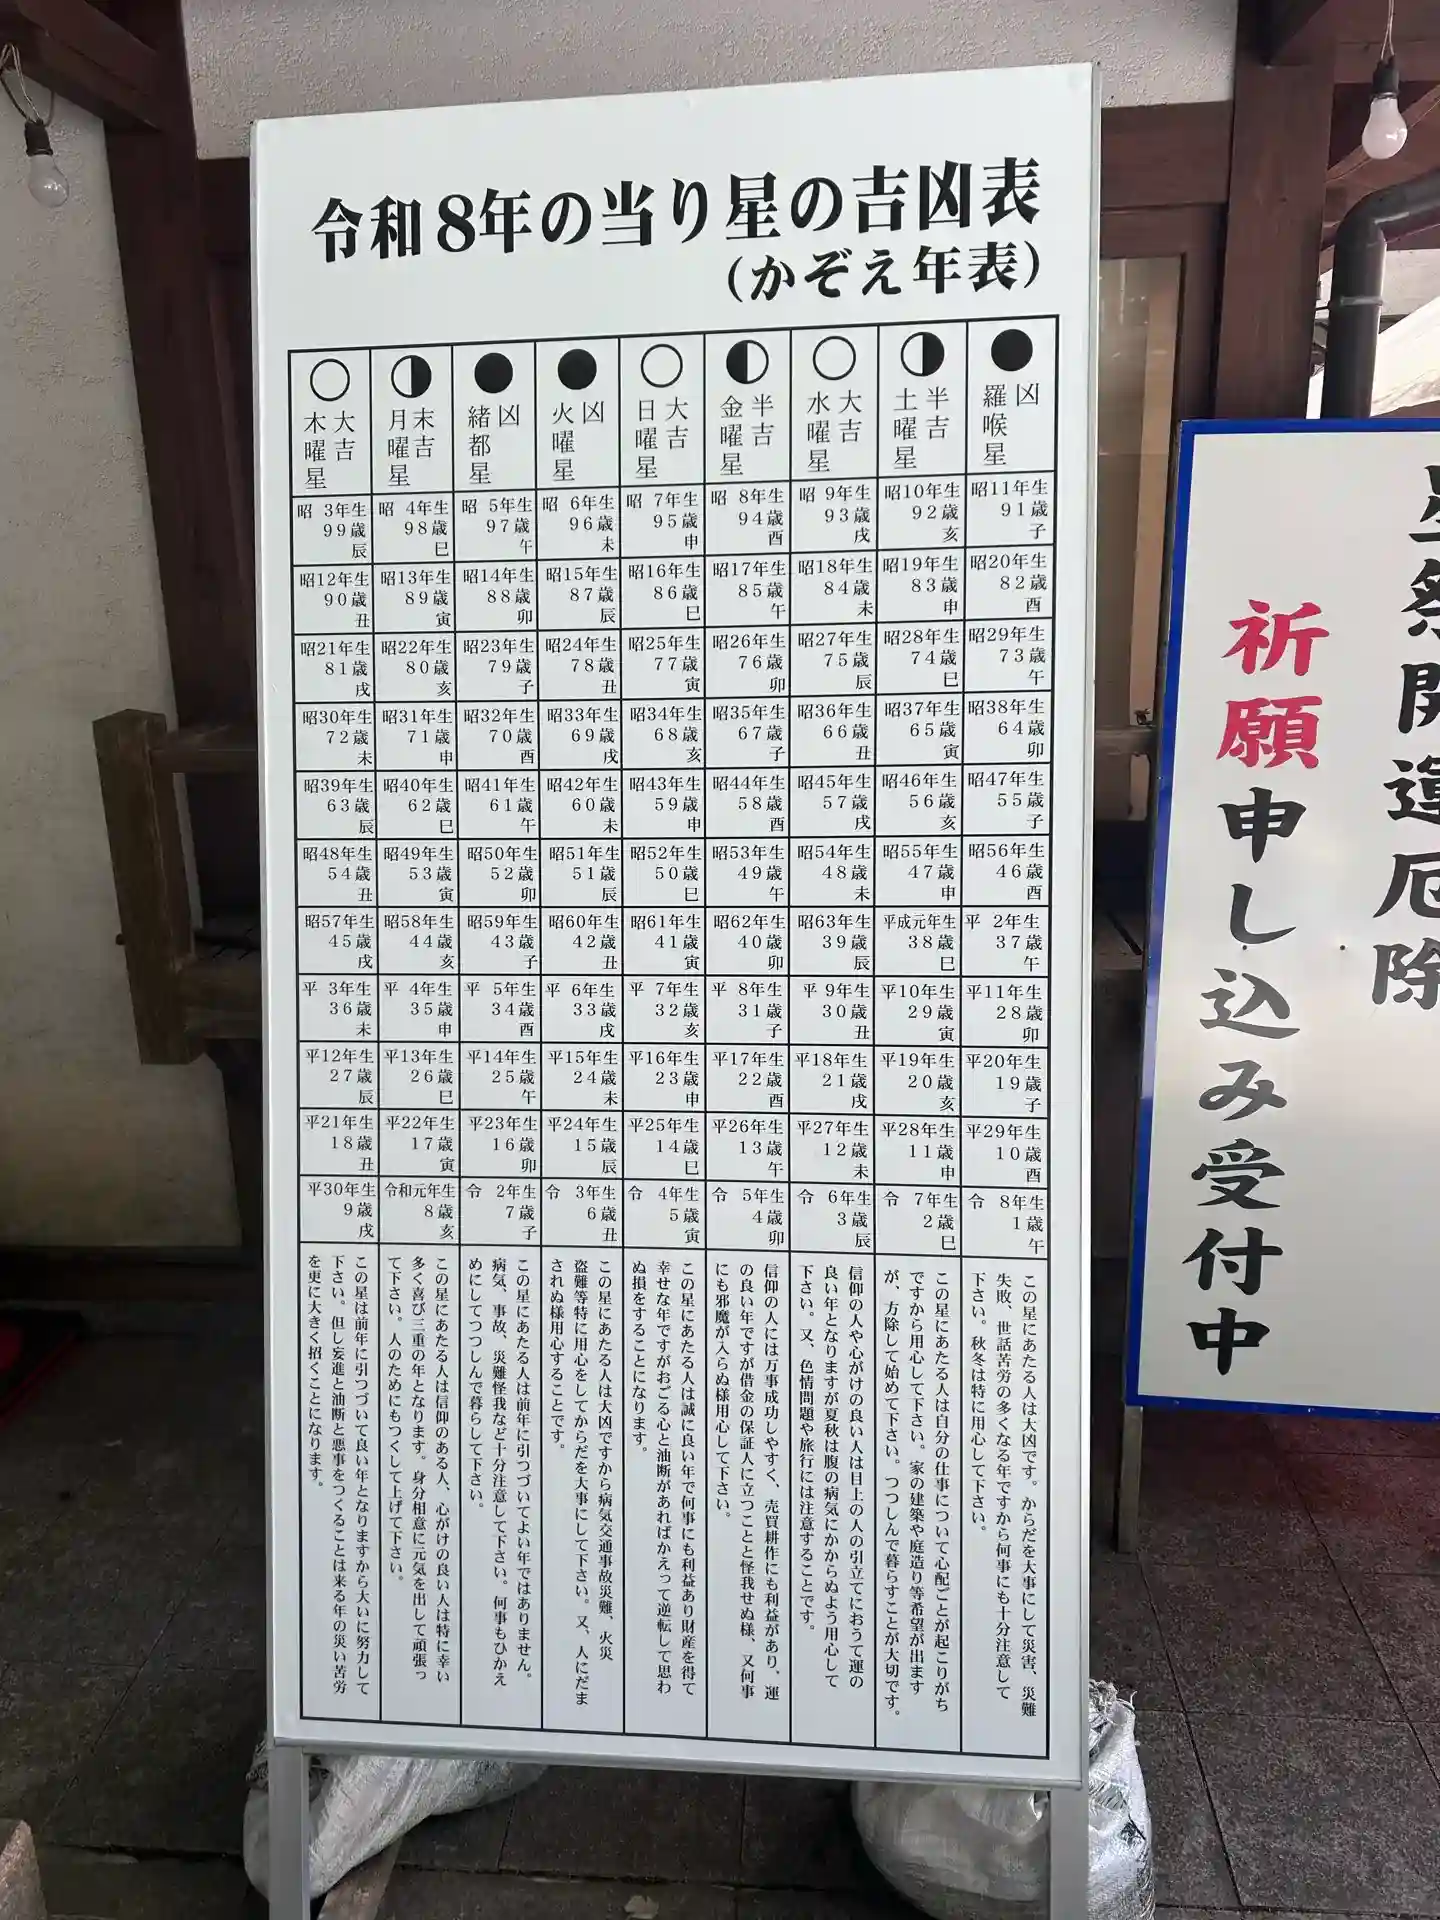 令和8年の当り星の吉凶表
(かぞえ年表)
凶
羅喉星
昭11年生
91歳
子
昭20年生
82歳
酉
昭29年生
73歳
午
昭38年生
64歳
卯
昭47年生
55歳
子
昭56年生
46歳
酉
平 2年生
37歳
午
平11年生
28歳
卯
平20年生
19歳
子
平29年生
10歳
酉
令 8年生
1歳
午
この星にあたる人は大凶です。からだを大事にして災害、災難
失敗、世話苦労の多くなる年ですから何事にも十分注意して
下さい。秋冬は特に用心して下さい。
半吉
土曜星
昭10年生
92歳
亥
昭19年生
83歳
申
昭28年生
74歳
巳
昭37年生
65歳
寅
昭46年生
56歳
亥
昭55年生
47歳
申
平成元年生
38歳
巳
平10年生
29歳
寅
平19年生
20歳
亥
平28年生
11歳
申
令 7年生
2歳
巳
この星にあたる人は自分の仕事について心配ごとが起こりがち
ですから用心して下さい。家の建築や庭造り等希望が出ます
が、方除して始めて下さい。つつしんで暮らすことが大切です。
大吉
水曜星
昭 9年生
93歳
戌
昭18年生
84歳
未
昭27年生
75歳
辰
昭36年生
66歳
丑
昭45年生
57歳
戌
昭54年生
48歳
未
昭63年生
39歳
辰
平 9年生
30歳
丑
平18年生
21歳
戌
平27年生
12歳
未
令 6年生
3歳
辰
信仰の人や心がけの良い人は目上の人の引立てにおうて運の
良い年となりますが夏秋は腹の病気にかからぬよう用心して
下さい。又、色情問題や旅行には注意することです。
半吉
金曜星
昭 8年生
94歳
酉
昭17年生
85歳
午
昭26年生
76歳
卯
昭35年生
67歳
子
昭44年生
58歳
酉
昭53年生
49歳
午
昭62年生
40歳
卯
平 8年生
31歳
子
平17年生
22歳
酉
平26年生
13歳
午
令 5年生
4歳
卯
信仰の人には万事成功しやすく、売買耕作にも利益があり、運
の良い年ですが借金の保証人に立つことと怪我せぬ様、又何事
にも邪魔が入らぬ様用心して下さい。
大吉
日曜星
昭 7年生
95歳
申
昭16年生
86歳
巳
昭25年生
77歳
寅
昭34年生
68歳
亥
昭43年生
59歳
申
昭52年生
50歳
巳
昭61年生
41歳
寅
平 7年生
32歳
亥
平16年生
23歳
申
平25年生
14歳
巳
令 4年生
5歳
寅
この星にあたる人は誠に良い年で何事にも利益あり財産を得て
幸せな年ですがおごる心と油断があればかえって逆転して思わ
ぬ損をすることになります。
凶
火曜星
昭 6年生
96歳
未
昭15年生
87歳
辰
昭24年生
78歳
丑
昭33年生
69歳
戌
昭42年生
60歳
未
昭51年生
51歳
辰
昭60年生
42歳
丑
平 6年生
33歳
戌
平15年生
24歳
未
平24年生
15歳
辰
令 3年生
6歳
丑
この星にあたる人は大凶ですから病気交通事故災難、火災
盗難等特に用心をしてからだを大事にして下さい。又、人にだま
されぬ様用心することです。
凶
緒都星
昭 5年生
97歳
午
昭14年生
88歳
卯
昭23年生
79歳
子
昭32年生
70歳
酉
昭41年生
61歳
午
昭50年生
52歳
卯
昭59年生
43歳
子
平 5年生
34歳
酉
平14年生
25歳
午
平23年生
16歳
卯
令 2年生
7歳
子
この星にあたる人は前年に引つづいてよい年ではありません。
病気、事故、災難怪我など十分注意して下さい。何事もひかえ
めにしてつつしんで暮らして下さい。
末吉
月曜星
昭 4年生
98歳
巳
昭13年生
89歳
寅
昭22年生
80歳
亥
昭31年生
71歳
申
昭40年生
62歳
巳
昭49年生
53歳
寅
昭58年生
44歳
亥
平 4年生
35歳
申
平13年生
26歳
巳
平22年生
17歳
寅
令和元年生
8歳
亥
この星にあたる人は信仰のある人、心がけの良い人は特に幸い
多く喜び三重の年となります。身分相意に元気を出して頑張っ
て下さい。人のためにもつくして上げて下さい。
大吉
木曜星
昭 3年生
99歳
辰
昭12年生
90歳
丑
昭21年生
81歳
戌
昭30年生
72歳
未
昭39年生
63歳
辰
昭48年生
54歳
丑
昭57年生
45歳
戌
平 3年生
36歳
未
平12年生
27歳
辰
平21年生
18歳
丑
平30年生
9歳
戌
この星は前年に引つづいて良い年となりますから大いに努力して
下さい。但し妄進と油断と悪事をつくることは来る年の災い苦労
を更に大きく招くことになります。
星祭開運厄除
祈願申し込み受付中